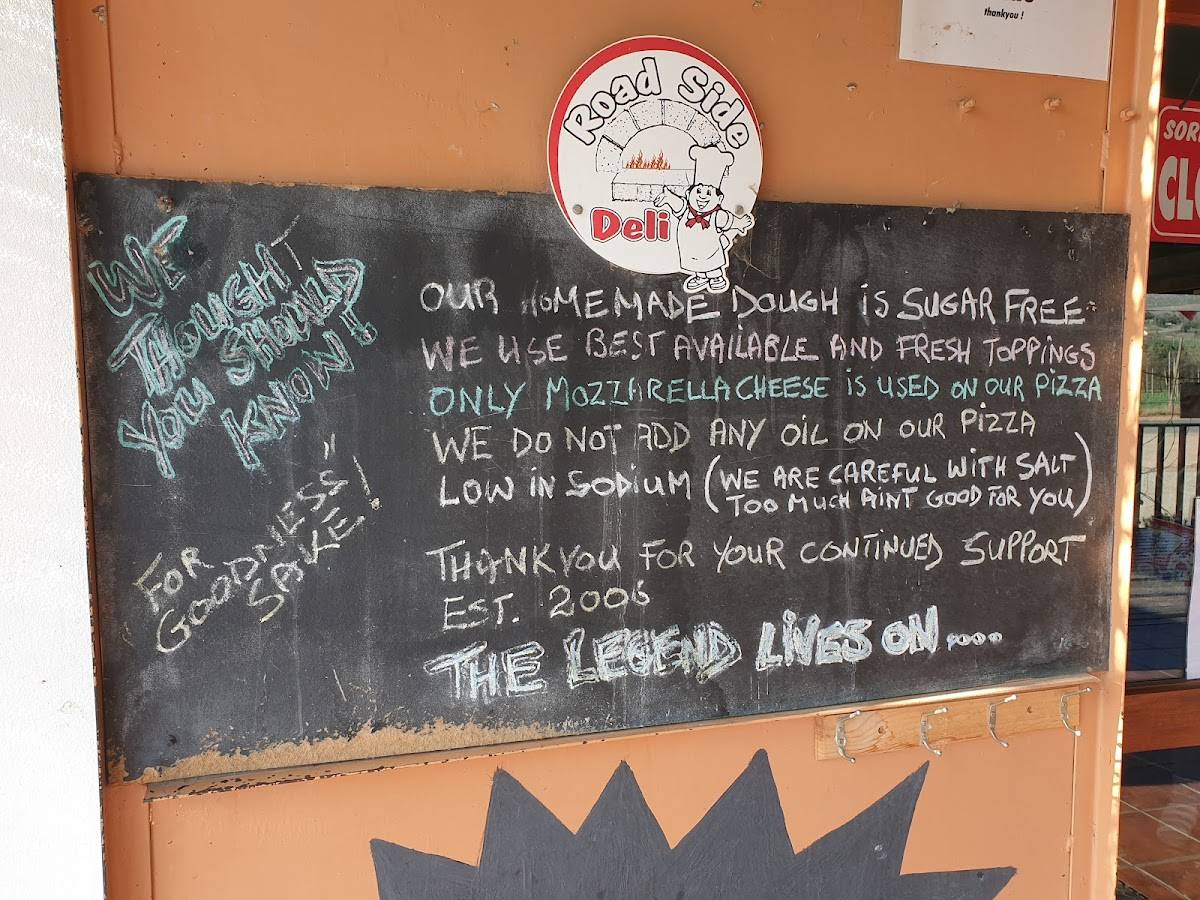 thankyou !
Road Side
Deli
WE
THOUGHT
YOU SHOULD
KNOW!
FOR
GOODNESS"
SAKE!
OUR HOMEMADE DOUGH iS SUGAR FREE
WE USE BEST AVAiLABLE AND FRESH TOPPiNGS
ONLY MOZZARELLA CHEESE iS USED ON OUR PiZZA
WE DO NOT ADD ANY OiL ON OUR PiZZA
LOW iN SODiUM (WE ARE CAREFUL WiTH SALT
TOO MUCH AiNT GOOD FOR YOU)
THANKYOU FOR YOUR CONTiNUED SUPPORT
EST. 2006
THE LEGEND LiVES ON.....